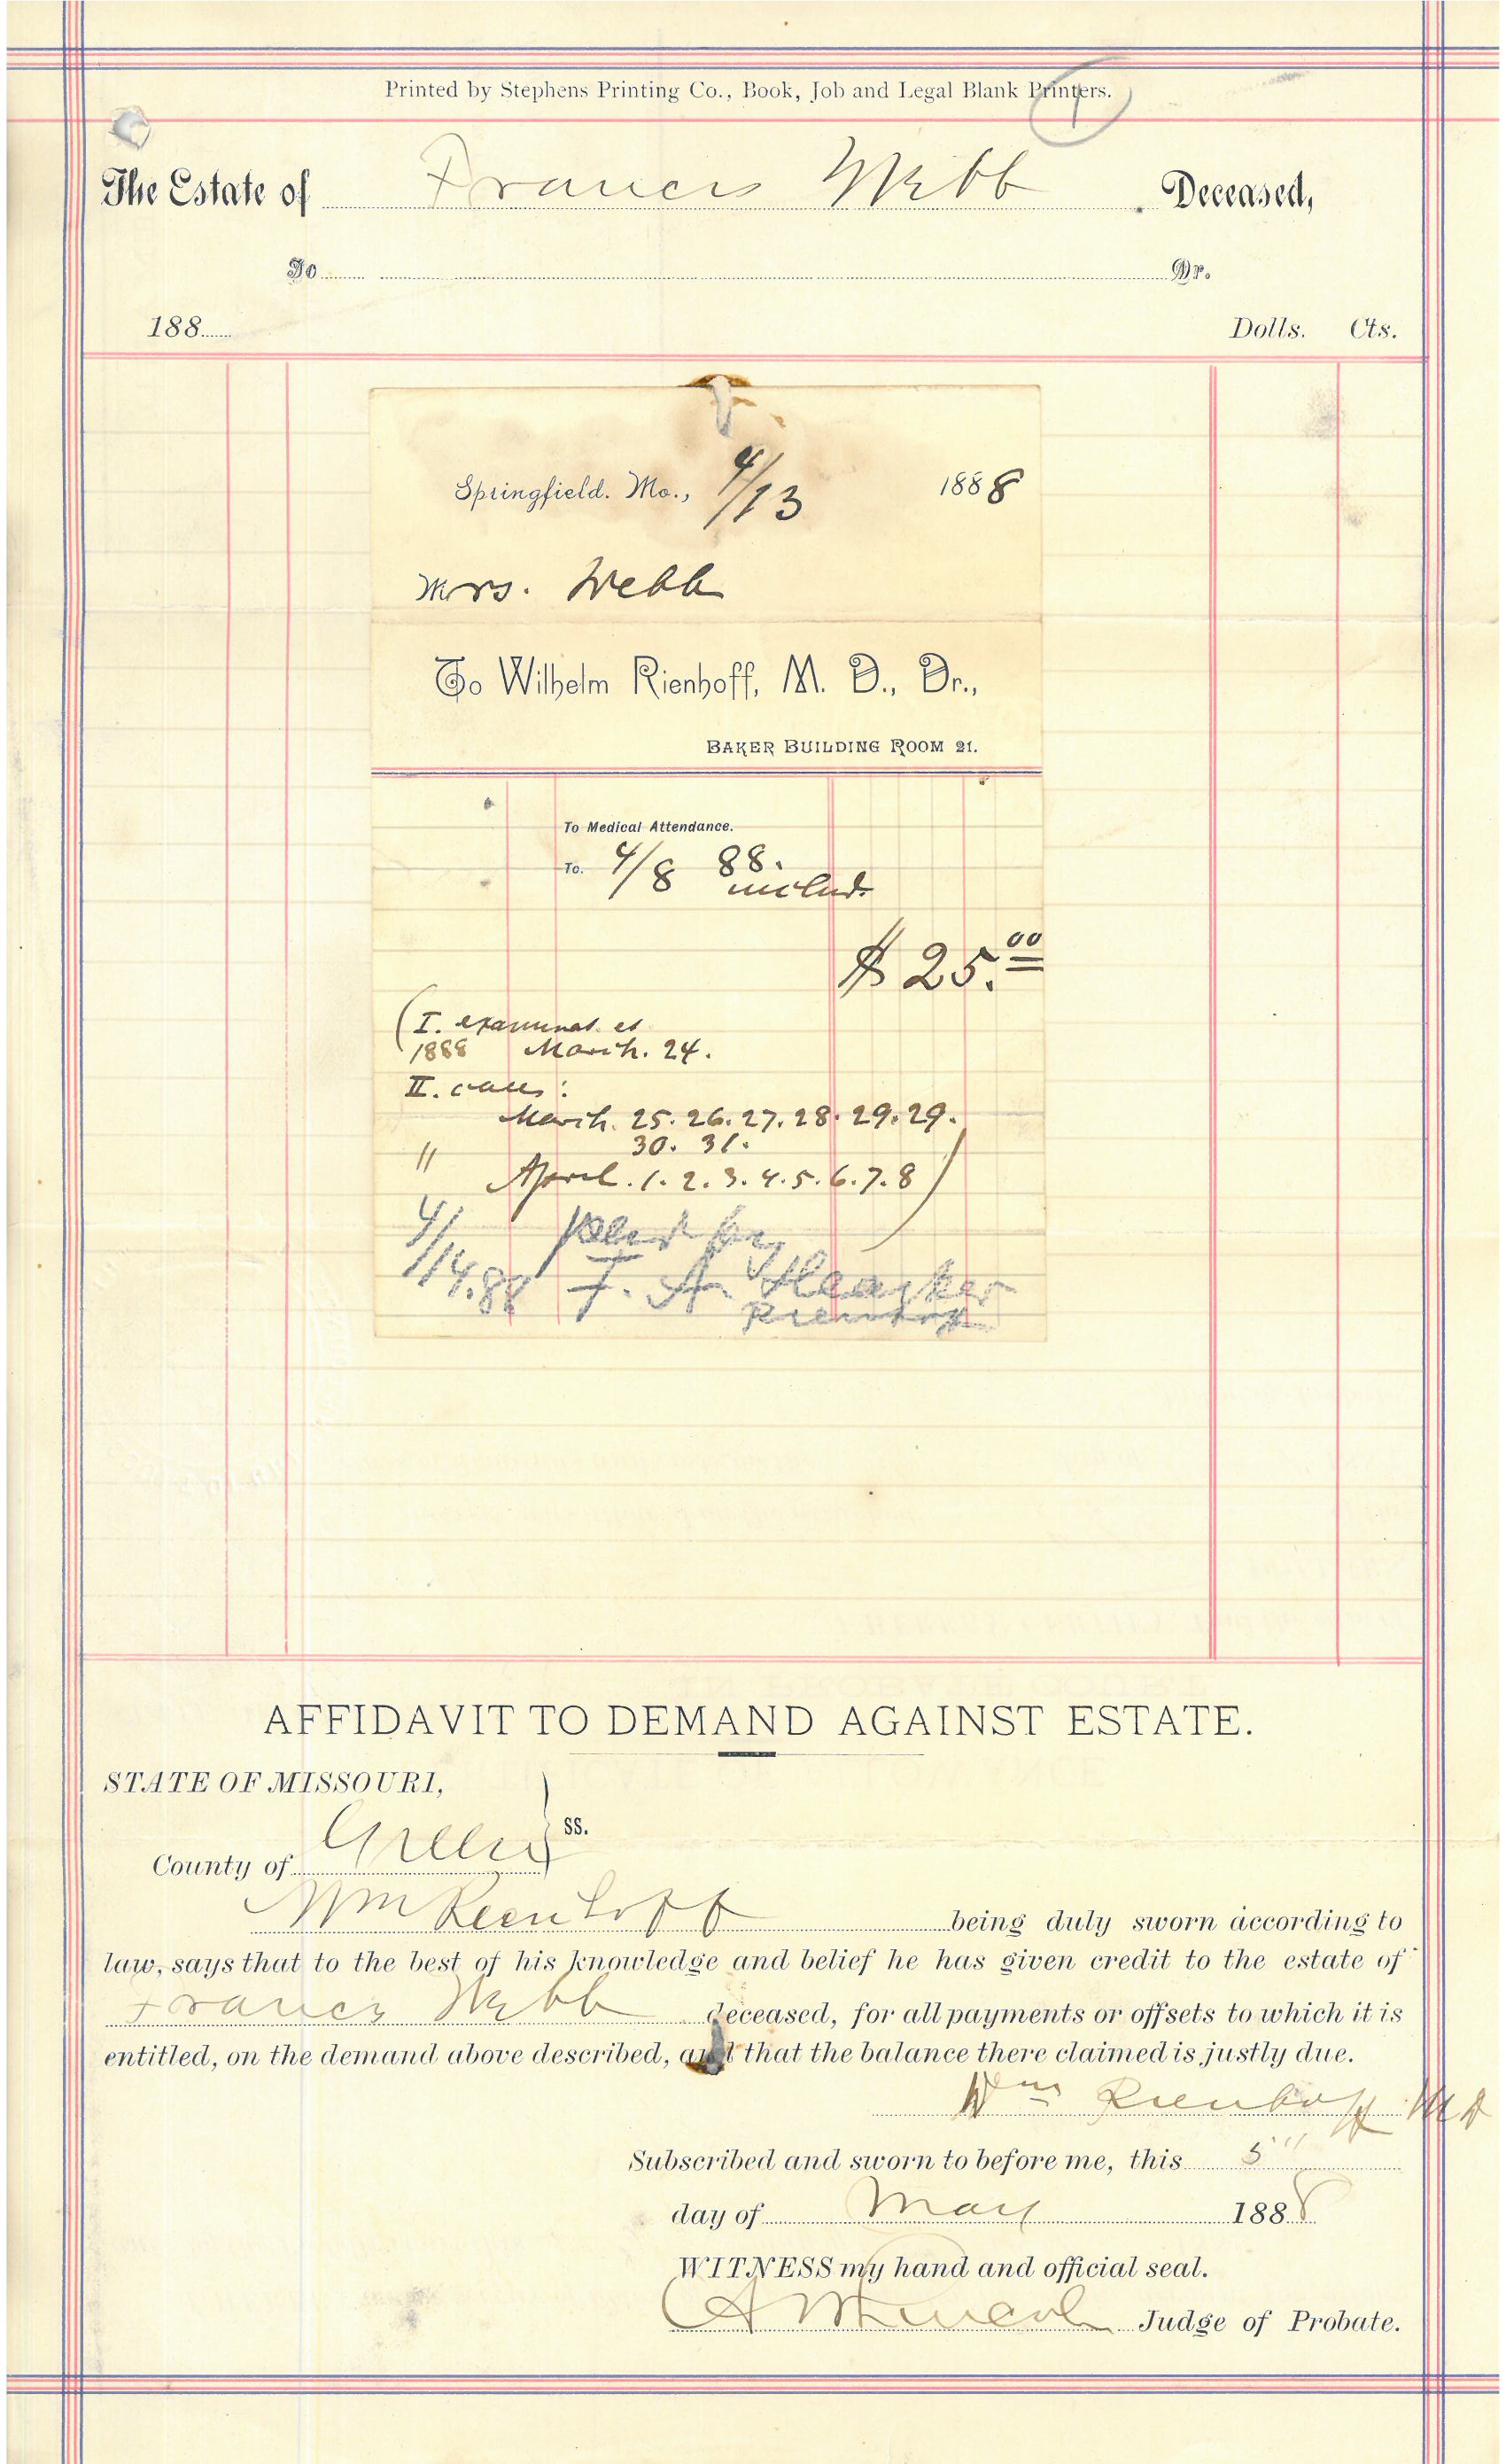 Printed by Stephens Printing Co., Book, Job and Legal Blank Printers.
1
The Estate of Francis Webb Deceased,
To Dr.
188 Dolls. Cts.
Springfield. Mo., 4/13 1888
Mrs. Webb
To Wilhelm Rienhoff, M. D., Dr.,
BAKER BUILDING ROOM 21.
To Medical Attendance.
To. 4/8 88.
includ.
$ 25.00
(I. examinat. et
1888 March. 24.
II. calls:
March. 25. 26. 27. 28. 29. 29.
30. 31.
" April. 1. 2. 3. 4. 5. 6. 7. 8)
4/14.88 F. A. Heacker
Rienhoff
AFFIDAVIT TO DEMAND AGAINST ESTATE.
STATE OF MISSOURI,
ss.
County of Green
Wm Rienhoff being duly sworn according to
law, says that to the best of his knowledge and belief he has given credit to the estate of
Francis Webb deceased, for all payments or offsets to which it is
entitled, on the demand above described, and that the balance there claimed is justly due.
Wm Rienhoff MD
Subscribed and sworn to before me, this 5"
day of May 1888
WITNESS my hand and official seal.
Judge of Probate.